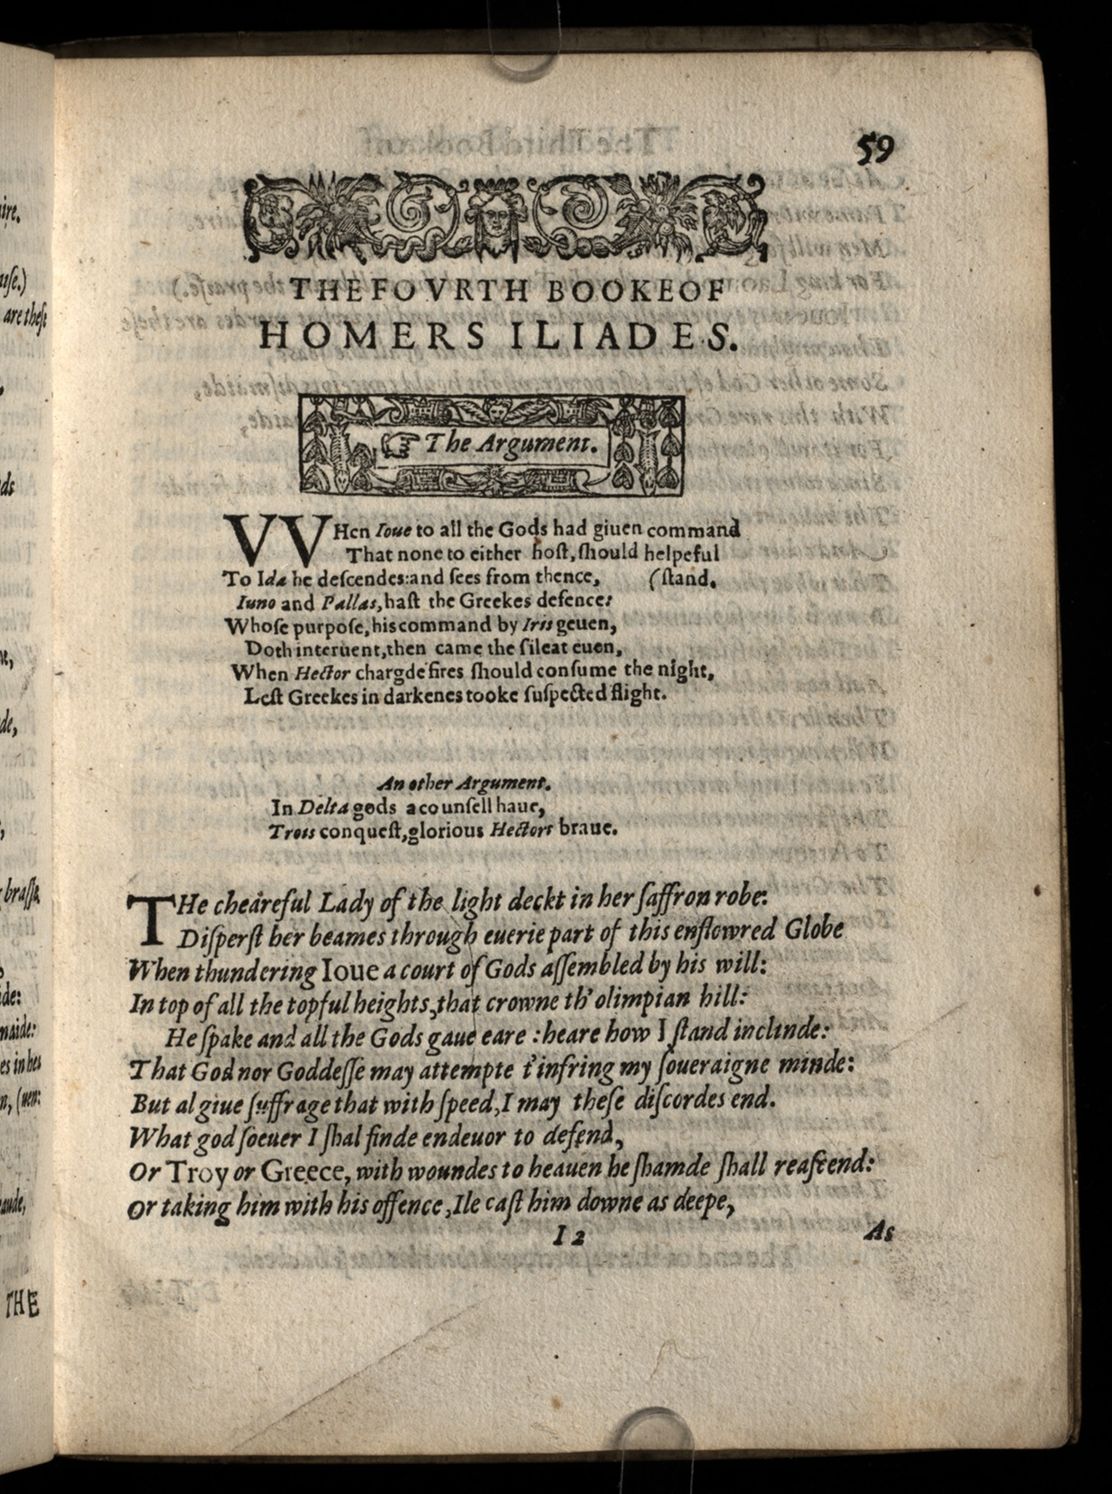 59
THE FOVRTH BOOKE OF
HOMERS ILIADES.
☞ The Argument.
VVHen Ioue to all the Gods had giuen command
That none to either host, ſhould helpeful
To Ida he deſcendes: and ſees from thence, (ſtand.
Iuno and Pallas, haſt the Greekes defence:
Whoſe purpoſe, his command by Iris geuen,
Doth interuent, then came the ſileat euen,
When Hector chargde fires ſhould conſume the night,
Leſt Greekes in darkenes tooke ſuſpected flight.
An other Argument.
In Delta gods a counſell haue,
Trois conqueſt, glorious Hectors braue.
THe cheareful Lady of the light deckt in her ſaffron robe:
Diſperſt her beames through euerie part of this enflowred Globe
When thundering Ioue a court of Gods aſſembled by his will:
In top of all the topful heights, that crowne th' olimpian hill:
He ſpake and all the Gods gaue eare : heare how I ſtand inclinde:
That God nor Goddeſſe may attempte t'infring my ſoueraigne minde:
But al giue ſuffrage that with ſpeed, I may theſe diſcordes end.
What god ſoeuer I ſhal finde endeuor to defend,
Or Troy or Greece, with woundes to heauen he ſhamde ſhall reaſcend:
Or taking him with his offence, Ile caſt him downe as deepe,
I 2
As